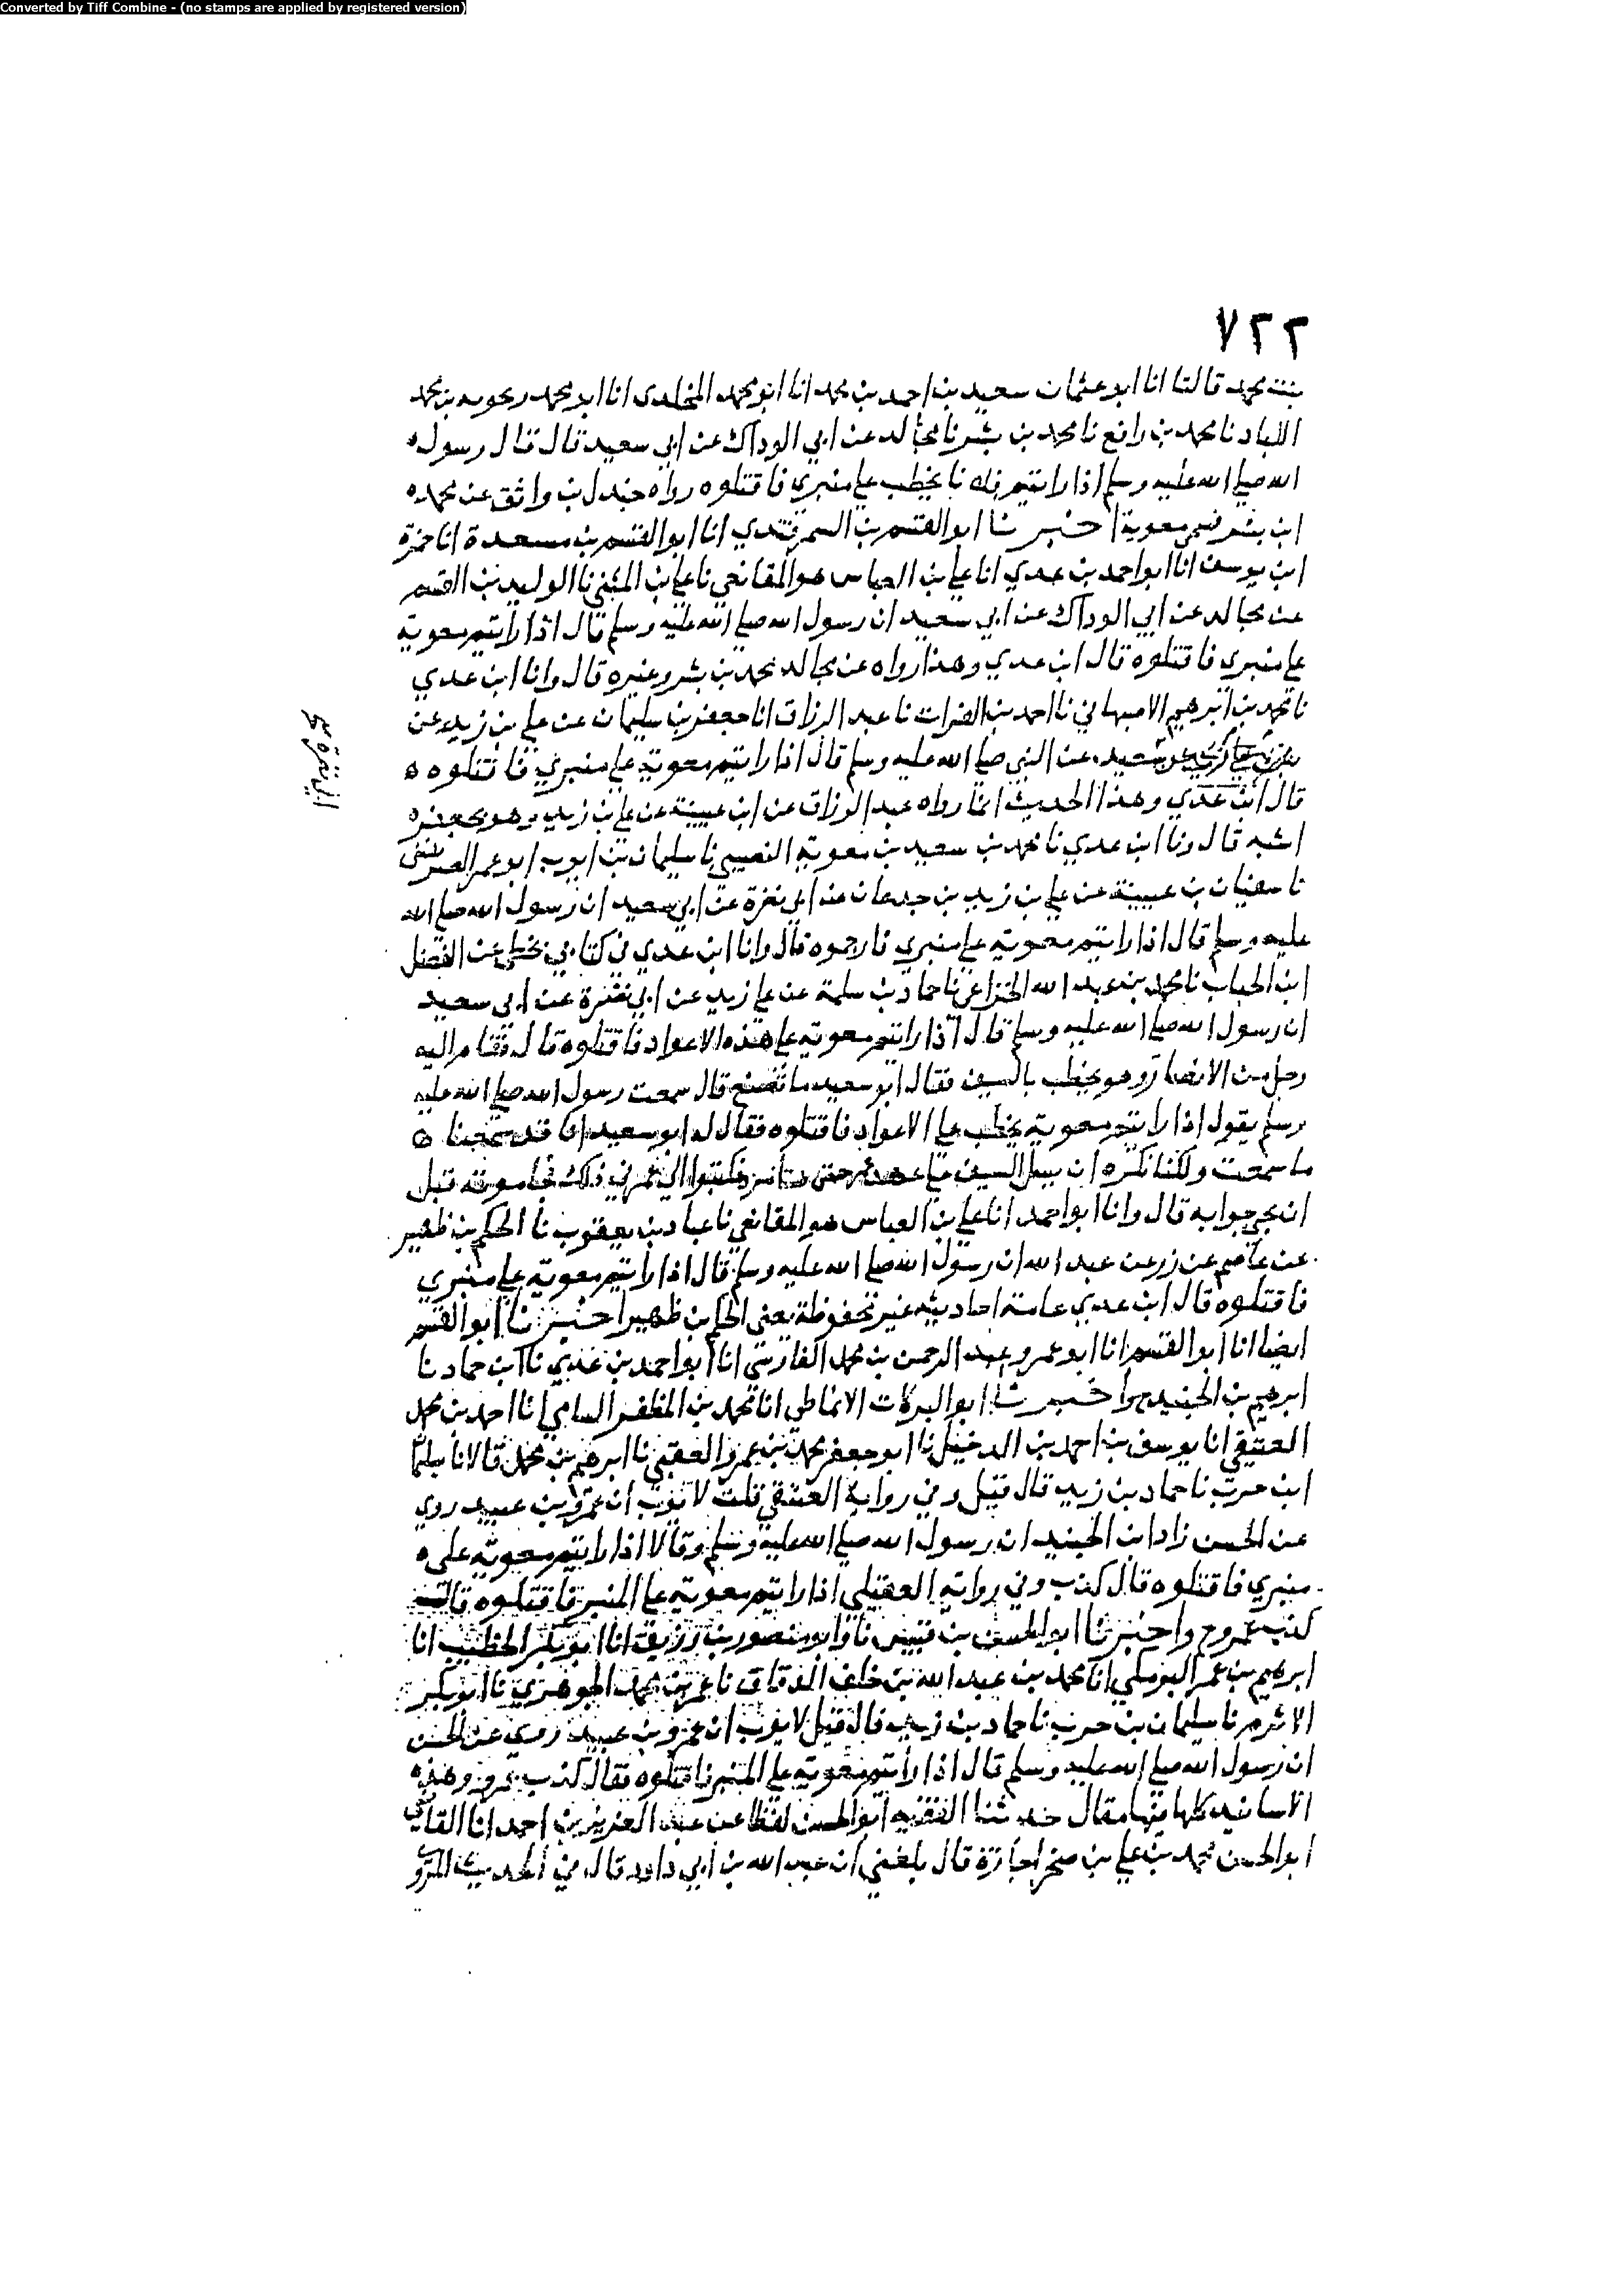 Converted by Tiff Combine - (no stamps are applied by registered version)
٧٢٢
بنت محمد قالتا انا ابو عثمان سعيد بن احمد بن محمد انا ابو محمد المخلدى انا ابو محمد ريحويه بن محمد
اللباد نا محمد بن رافع نا محمد بن بشر نا مجالد عن ابي الوداك عن ابي سعيد قال قال رسول
الله صلى الله عليه وسلم اذا رايتم فلانا يخطب على منبري فاقتلوه رواه جندل بن واثق عن محمد
ابن بشر فسمى معوية اخبرنا ابو القسم بن السمرقندي انا ابو القسم بن مسعدة انا حمزة
ابن يوسف انا ابو احمد بن عدي انا علي بن العباس هو المقانعي نا علي بن المثنى نا الوليد بن القسم
عن مجالد عن ابي الوداك عن ابي سعيد ان رسول الله صلى الله عليه وسلم قال اذا رايتم معوية
على منبري فاقتلوه قال ابن عدي وهذا رواه عن مجالد محمد بن بشر وغيره قال وانا ابن عدي
نا محمد بن ابرهيم الاصبهاني نا احمد بن الفرات نا عبد الرزاق انا جعفر بن سليمان عن علي بن زيد عن
ابي نضرة صح
سعيد عن النبي صلى الله عليه وسلم قال اذا رايتم معوية على منبري فاقتلوه ه
قال ابن عدي وهذا الحديث انما رواه عبد الرزاق عن ابن عيينة عن علي بن زيد وهو بجعفر
اشبه قال ونا ابن عدي نا محمد بن سعيد بن معوية النصيبي نا سليمان بن ايوب ابو عمر الصريفيني
نا سفيان بن عيينة عن علي بن زيد بن جدعان عن ابي نضرة عن ابي سعيد ان رسول الله صلى الله
عليه وسلم قال اذا رايتم معوية على منبري فارجموه قال وانا ابن عدي في كتابي بخطي عن الفضل
ابن الحباب نا محمد بن عبد الله الخزاعي نا حماد بن سلمة عن علي زيد عن ابي نضرة عن ابي سعيد
ان رسول الله صلى الله عليه وسلم قال اذا رايتم معوية على هذه الاعواد فاقتلوه قال فقام اليه
رجل من الانصار وهو يخطب بالسيف فقال ابو سعيد ما تصنع قال سمعت رسول الله صلى الله عليه
وسلم يقول اذا رايتم معوية يخطب على الاعواد فاقتلوه فقال له ابو سعيد انا قد سمعنا ه
ما سمعت ولكنا نكره ان يسل السيف على عهد عمر حتى نستامره فكتبوا الى عمر في ذلك فجا موته قبل
ان يجي جوابه قال وانا ابو احمد انا علي بن العباس هو المقانعي نا عباد بن يعقوب نا الحكم بن ظهير
عن عاصم عن زر عن عبد الله ان رسول الله صلى الله عليه وسلم قال اذا رايتم معوية على منبري
فاقتلوه قال ابن عدي عامة احاديثه غير محفوظة يعني الحكم بن ظهير اخبرنا ابو القسم
ايضا انا ابو القسم انا ابو عمرو عبد الرحمن بن محمد الفارسي انا ابو احمد بن عدي نا ابن حماد نا
ابرهيم بن الجنيد ح واخبرنا ابو البركات الانماطي انا محمد بن المظفر السامي انا احمد بن محمد
العتيقي انا يوسف بن احمد بن الدخيل نا ابو جعفر محمد بن عمرو العقيلي نا ابرهيم بن محمد قالا نا سليمان
ابن حرب نا حماد بن زيد قال قيل وفي رواية العتيقي قلت لايوب ان عمرو بن عبيد روى
عن الحسن زاد ابن الجنيد ان رسول الله صلى الله عليه وسلم وقالا اذا رايتم معوية على ه
منبري فاقتلوه قال كذب وفي رواية العقيلي اذا رايتم معوية على المنبر فاقتلوه قال
كذب عمرو ح واخبرنا ابو الحسن بن قبيس نا وابو منصور بن زريق انا ابو بكر الخطيب انا
ابرهيم بن عمر البرمكي انا محمد بن عبد الله بن خلف الدقاق نا عمر بن محمد الجوهري نا ابو بكر
الاثرم نا سليمان بن حرب نا حماد بن زيد قال قيل لايوب ان عمرو بن عبيد روى عن الحسن
ان رسول الله صلى الله عليه وسلم قال اذا رايتم معوية على المنبر فاقتلوه فقال كذب عمرو وهذه
الاسانيد كلها فيها مقال حدثنا الفقيه ابو الحسن لفظا عن عبد العزيز بن احمد انا القاضي
ابو الحسن محمد بن علي بن صخر اجازة قال بلغني ان عبد الله بن ابي داود قال في الحديث المروي